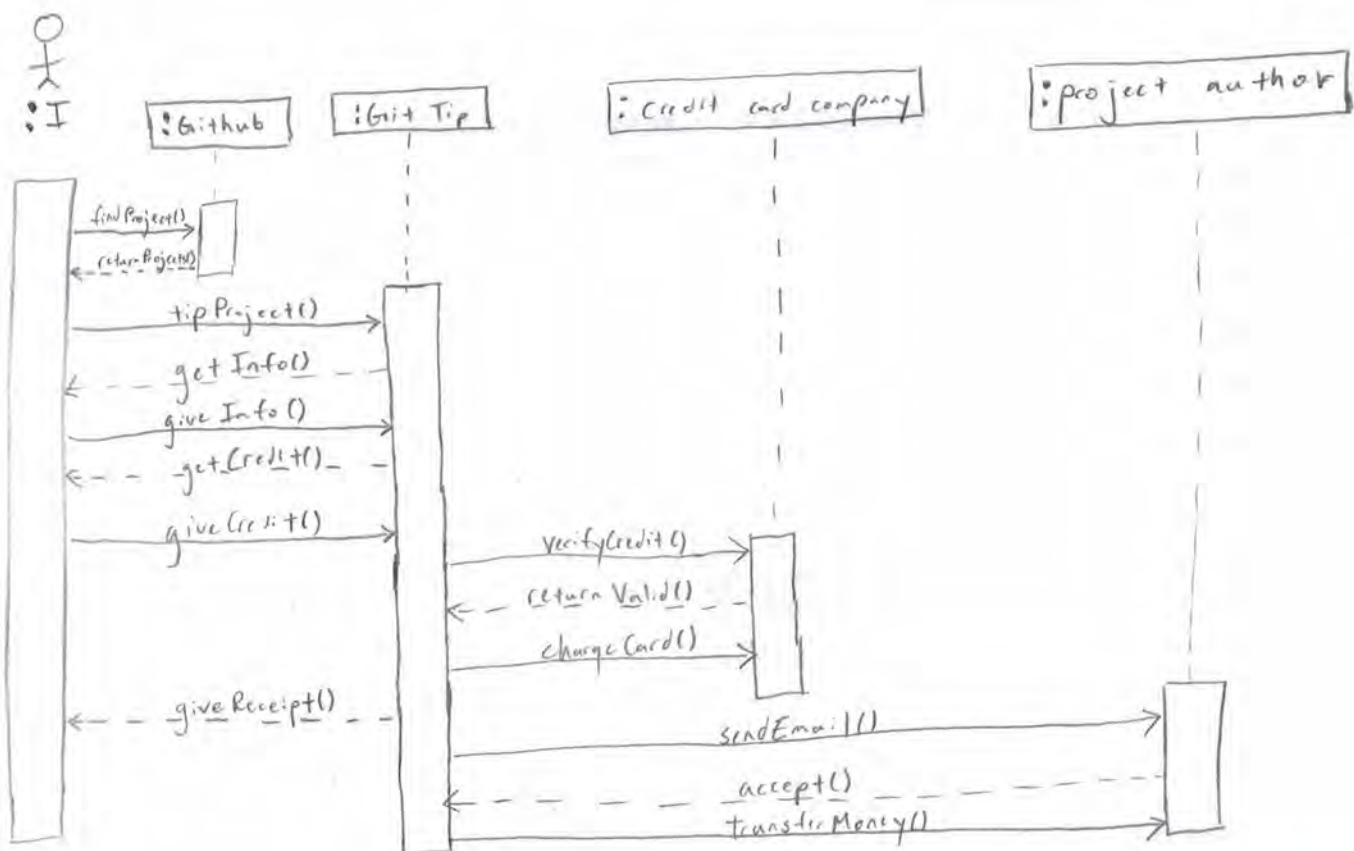 :I
:Github
:Git Tip
:Credit card company
:project author
findProject()
returnProjects()
tipProject()
get Info()
give Info()
getCredit()
giveCredit()
verifyCredit()
return Valid()
chargeCard()
giveReceipt()
sendEmail()
accept()
transferMoney()